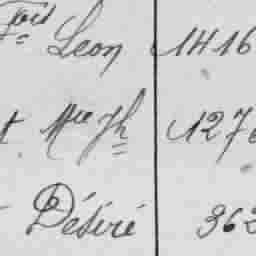 Fçois Léon 1416
t Mie Jh 127
Désiré 362